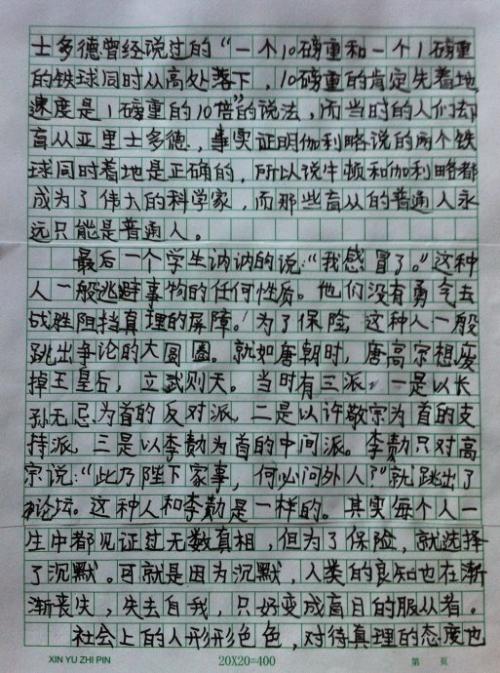 士多德曾经说过的“一个10磅重和一个1磅重
的铁球同时从高处落下，10磅重的肯定先着地
速度是1磅重的10倍”的说法，而当时的人们却
盲从亚里士多德，事实证明伽利略说的两个铁
球同时着地是正确的，所以说牛顿和伽利略都
成为了伟大的科学家，而那些盲从的普通人永
远只能是普通人。
最后一个学生讷讷的说：“我感冒了。”这种
人一般逃避事物的任何性质。他们没有勇气去
战胜阻挡真理的屏障！为了保险，这种人一般
跳出争论的大圆圈。就如唐朝时，唐高宗想废
掉王皇后，立武则天。当时有三派，一是以长
孙无忌为首的反对派，二是以许敬宗为首的支
持派，三是以李勣为首的中间派。李勣只对高
宗说：“此乃陛下家事，何必问外人？”就跳出了
论坛。这种人和李勣是一样的。其实每个人一
生中都见证过无数真相，但为了保险，就选择
了沉默。可就是因为沉默，人类的良知也在渐
渐丧失，失去自我，只好变成盲目的服从者。
社会上的人形形色色，对待真理的态度也
XIN YU ZHI PIN 20X20=400 第 页